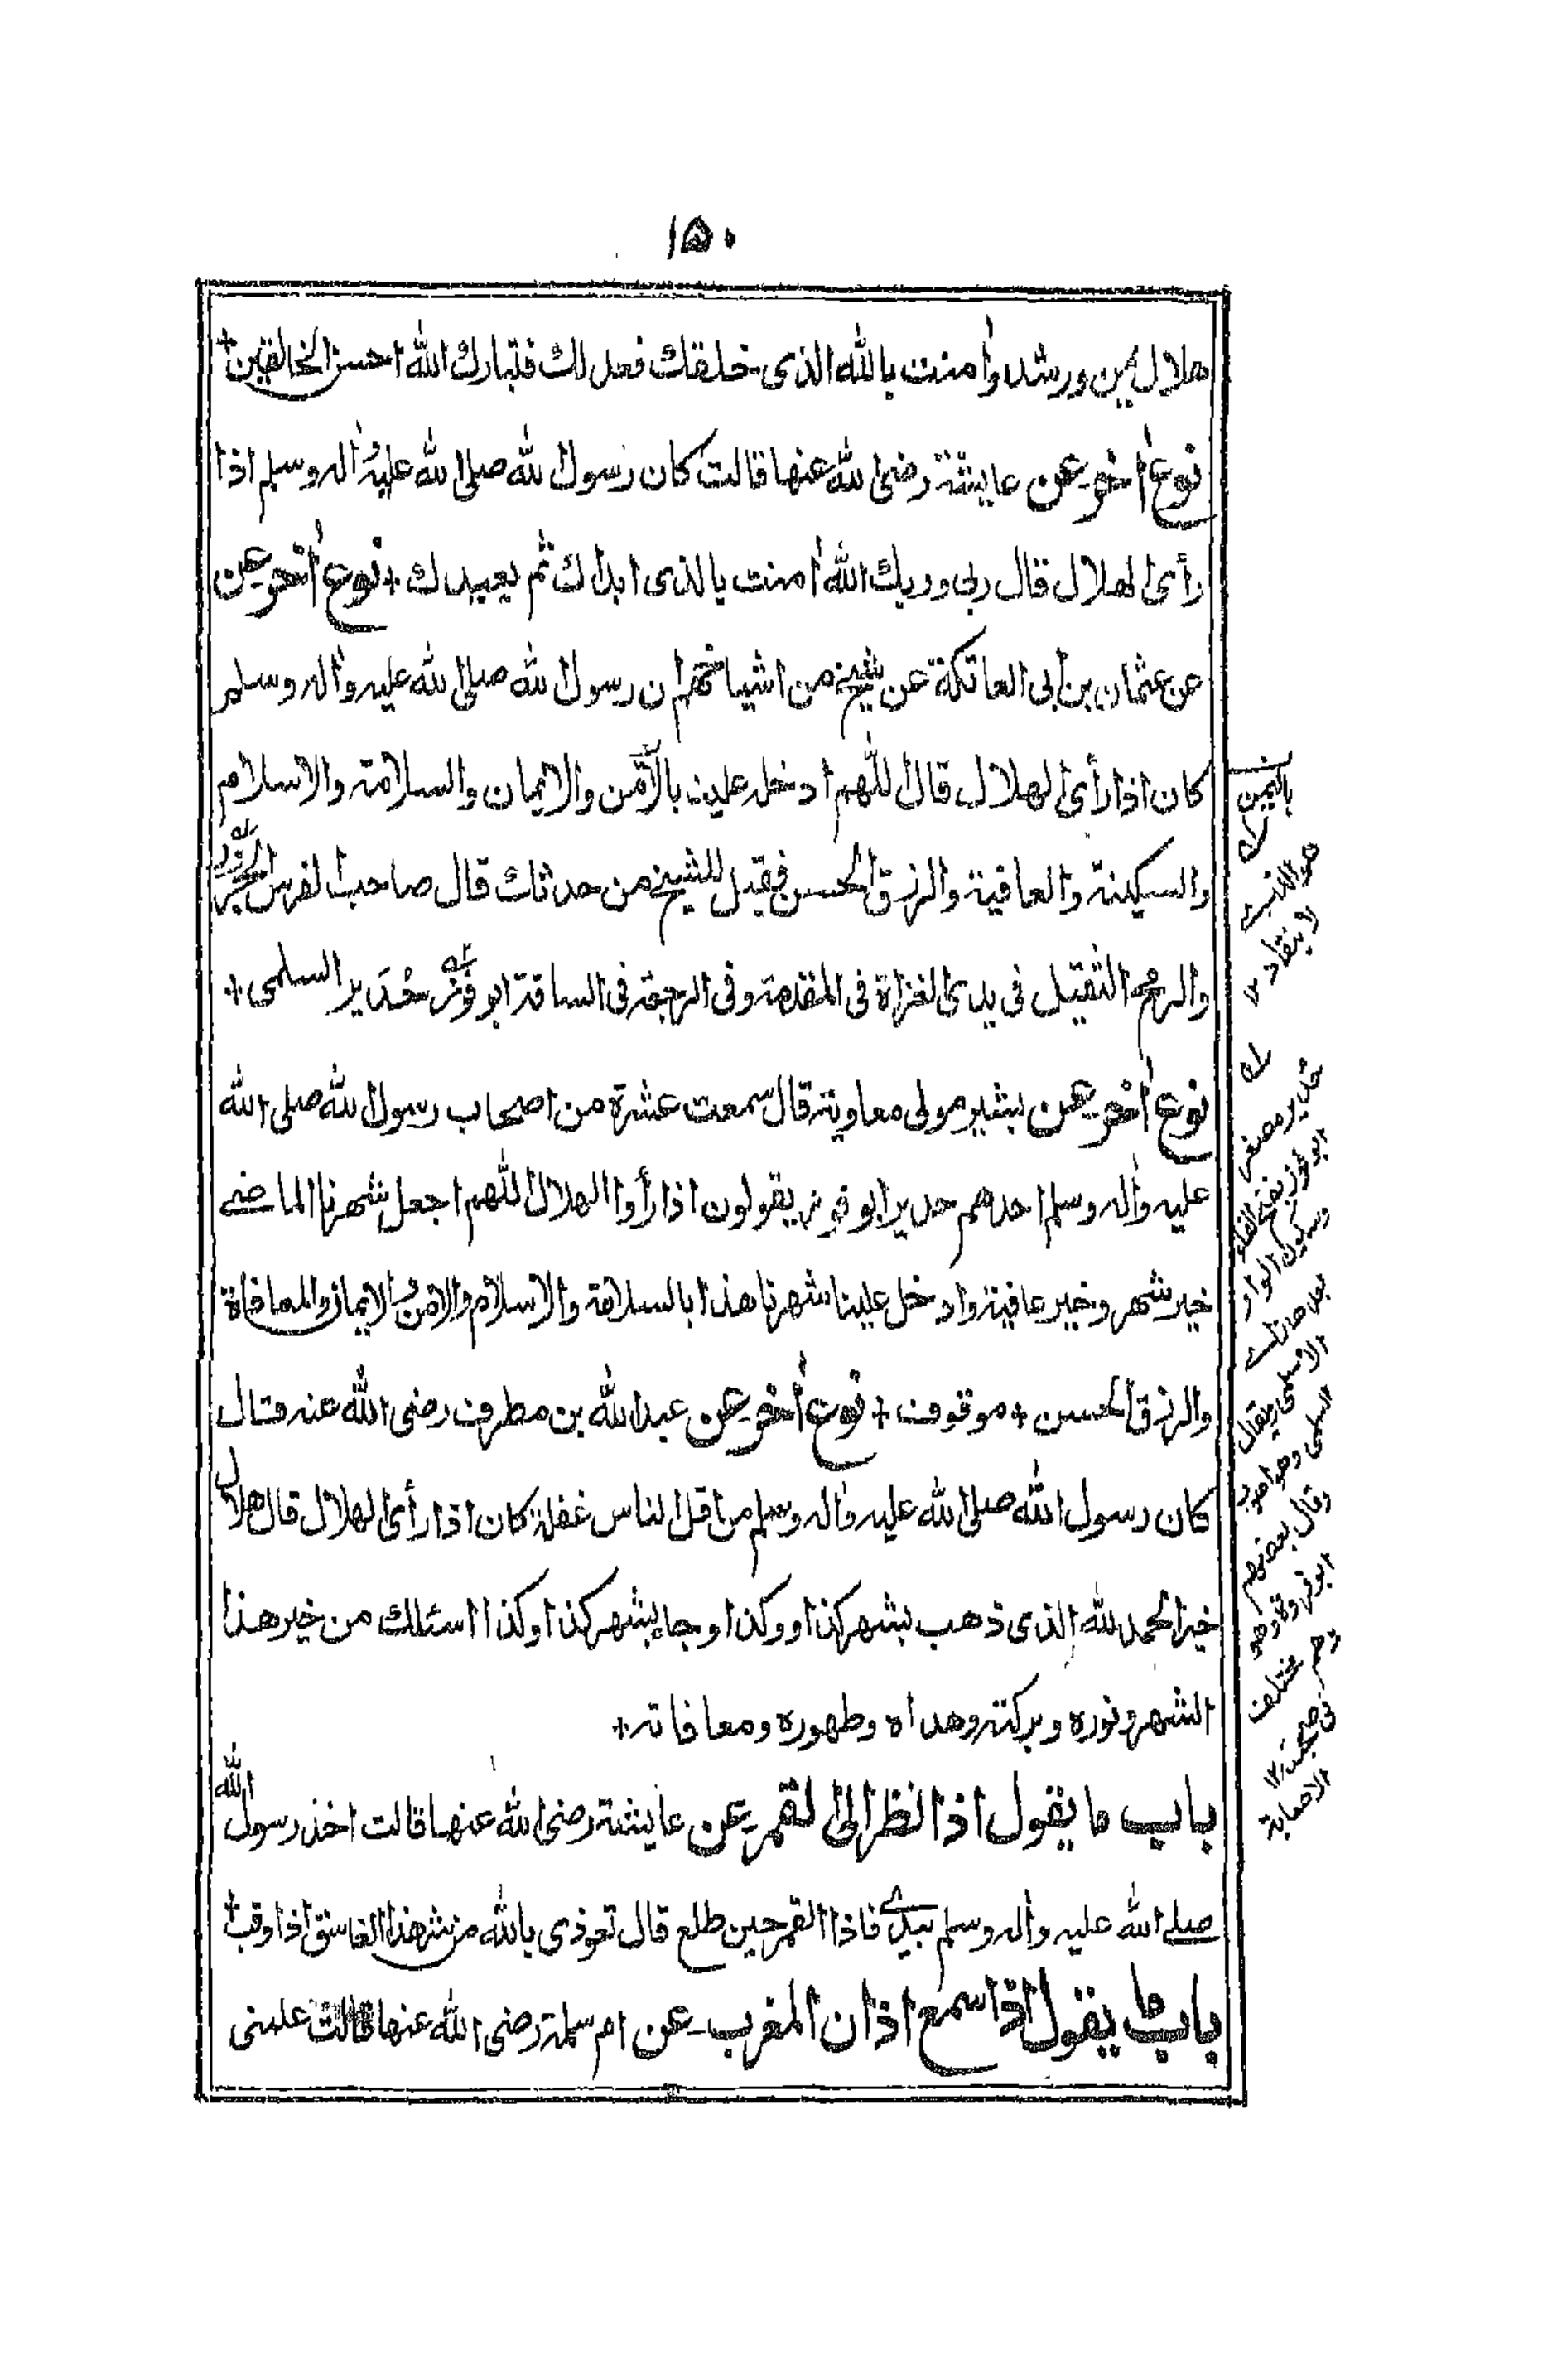 ١٥٠
هلال يمن ورشد وآمنت بالله الذى خلقك فعدلك فتبارك الله احسن الخالقين+
نوع آخر عن عايشة رضى الله عنها قالت كان رسول الله صلى الله عليه وآله وسلم اذا
رأى الهلال قال ربى وربك الله آمنت بالذى ابدأك ثم يعيدك + نوع آخر عن
عن عثمان بن أبى العاتكة عن شيخ من اشياخهم ان رسول الله صلى الله عليه وآله وسلم
كان اذا رأى الهلال قال اللهم ادخله علينا بالأمن والايمان والسلامة والاسلام
والسكينة والعافية والرزق الحسن فقيل للشيخ من حدثك قال صاحب الفرس الحرور
والرمح الثقيل فى يدى الغزاة فى المقدمة وفى الرجعة فى الساقة ابو فوزة حُدَير السلمى+
نوع آخر عن بشير مولى معاوية قال سمعت عشرة من اصحاب رسول الله صلى الله
عليه وآله وسلم احدهم حدير ابو فوزة يقولون اذا رأوا الهلال اللهم اجعل شهرنا الماضى
خير شهر وخير عافية وادخل علينا شهرنا هذا بالسلامة والاسلام والامن والايمان والمعافاة
والرزق الحسن + موقوف + نوع آخر عن عبد الله بن مطرف رضى الله عنه قال
كان رسول الله صلى الله عليه وآله وسلم من اقل الناس غفلة كان اذا رأى الهلال قال هلال
خير الحمد لله الذى ذهب بشهر كذا ووكذا وجاء بشهر كذا وكذا اسئلك من خير هذا
الشهر ونوره وبركته وهداه وطهوره ومعافاته+
باب ما يقول اذا نظر الى القمر عن عايشة رضى الله عنها قالت اخذ رسول الله
صلى الله عليه وآله وسلم بيدى فاذا القمر حين طلع قال تعوذى بالله من شر هذا الغاسق اذا وقب+
باب ما يقول اذا سمع اذان المغرب عن ام سلمة رضى الله عنها قالت علمنى
باليمن
هو الذى
لا ينقاد ١٢
حدير مصغر
ابو فوزة بفتح الفاء
وسكون الواو
بعدها زاى
الاسلمى ويقال
السلمى وهو اصوب
وقال بعضهم
ابو فروة وهو
مختلف
فى صحبته ١٢
الاصابة